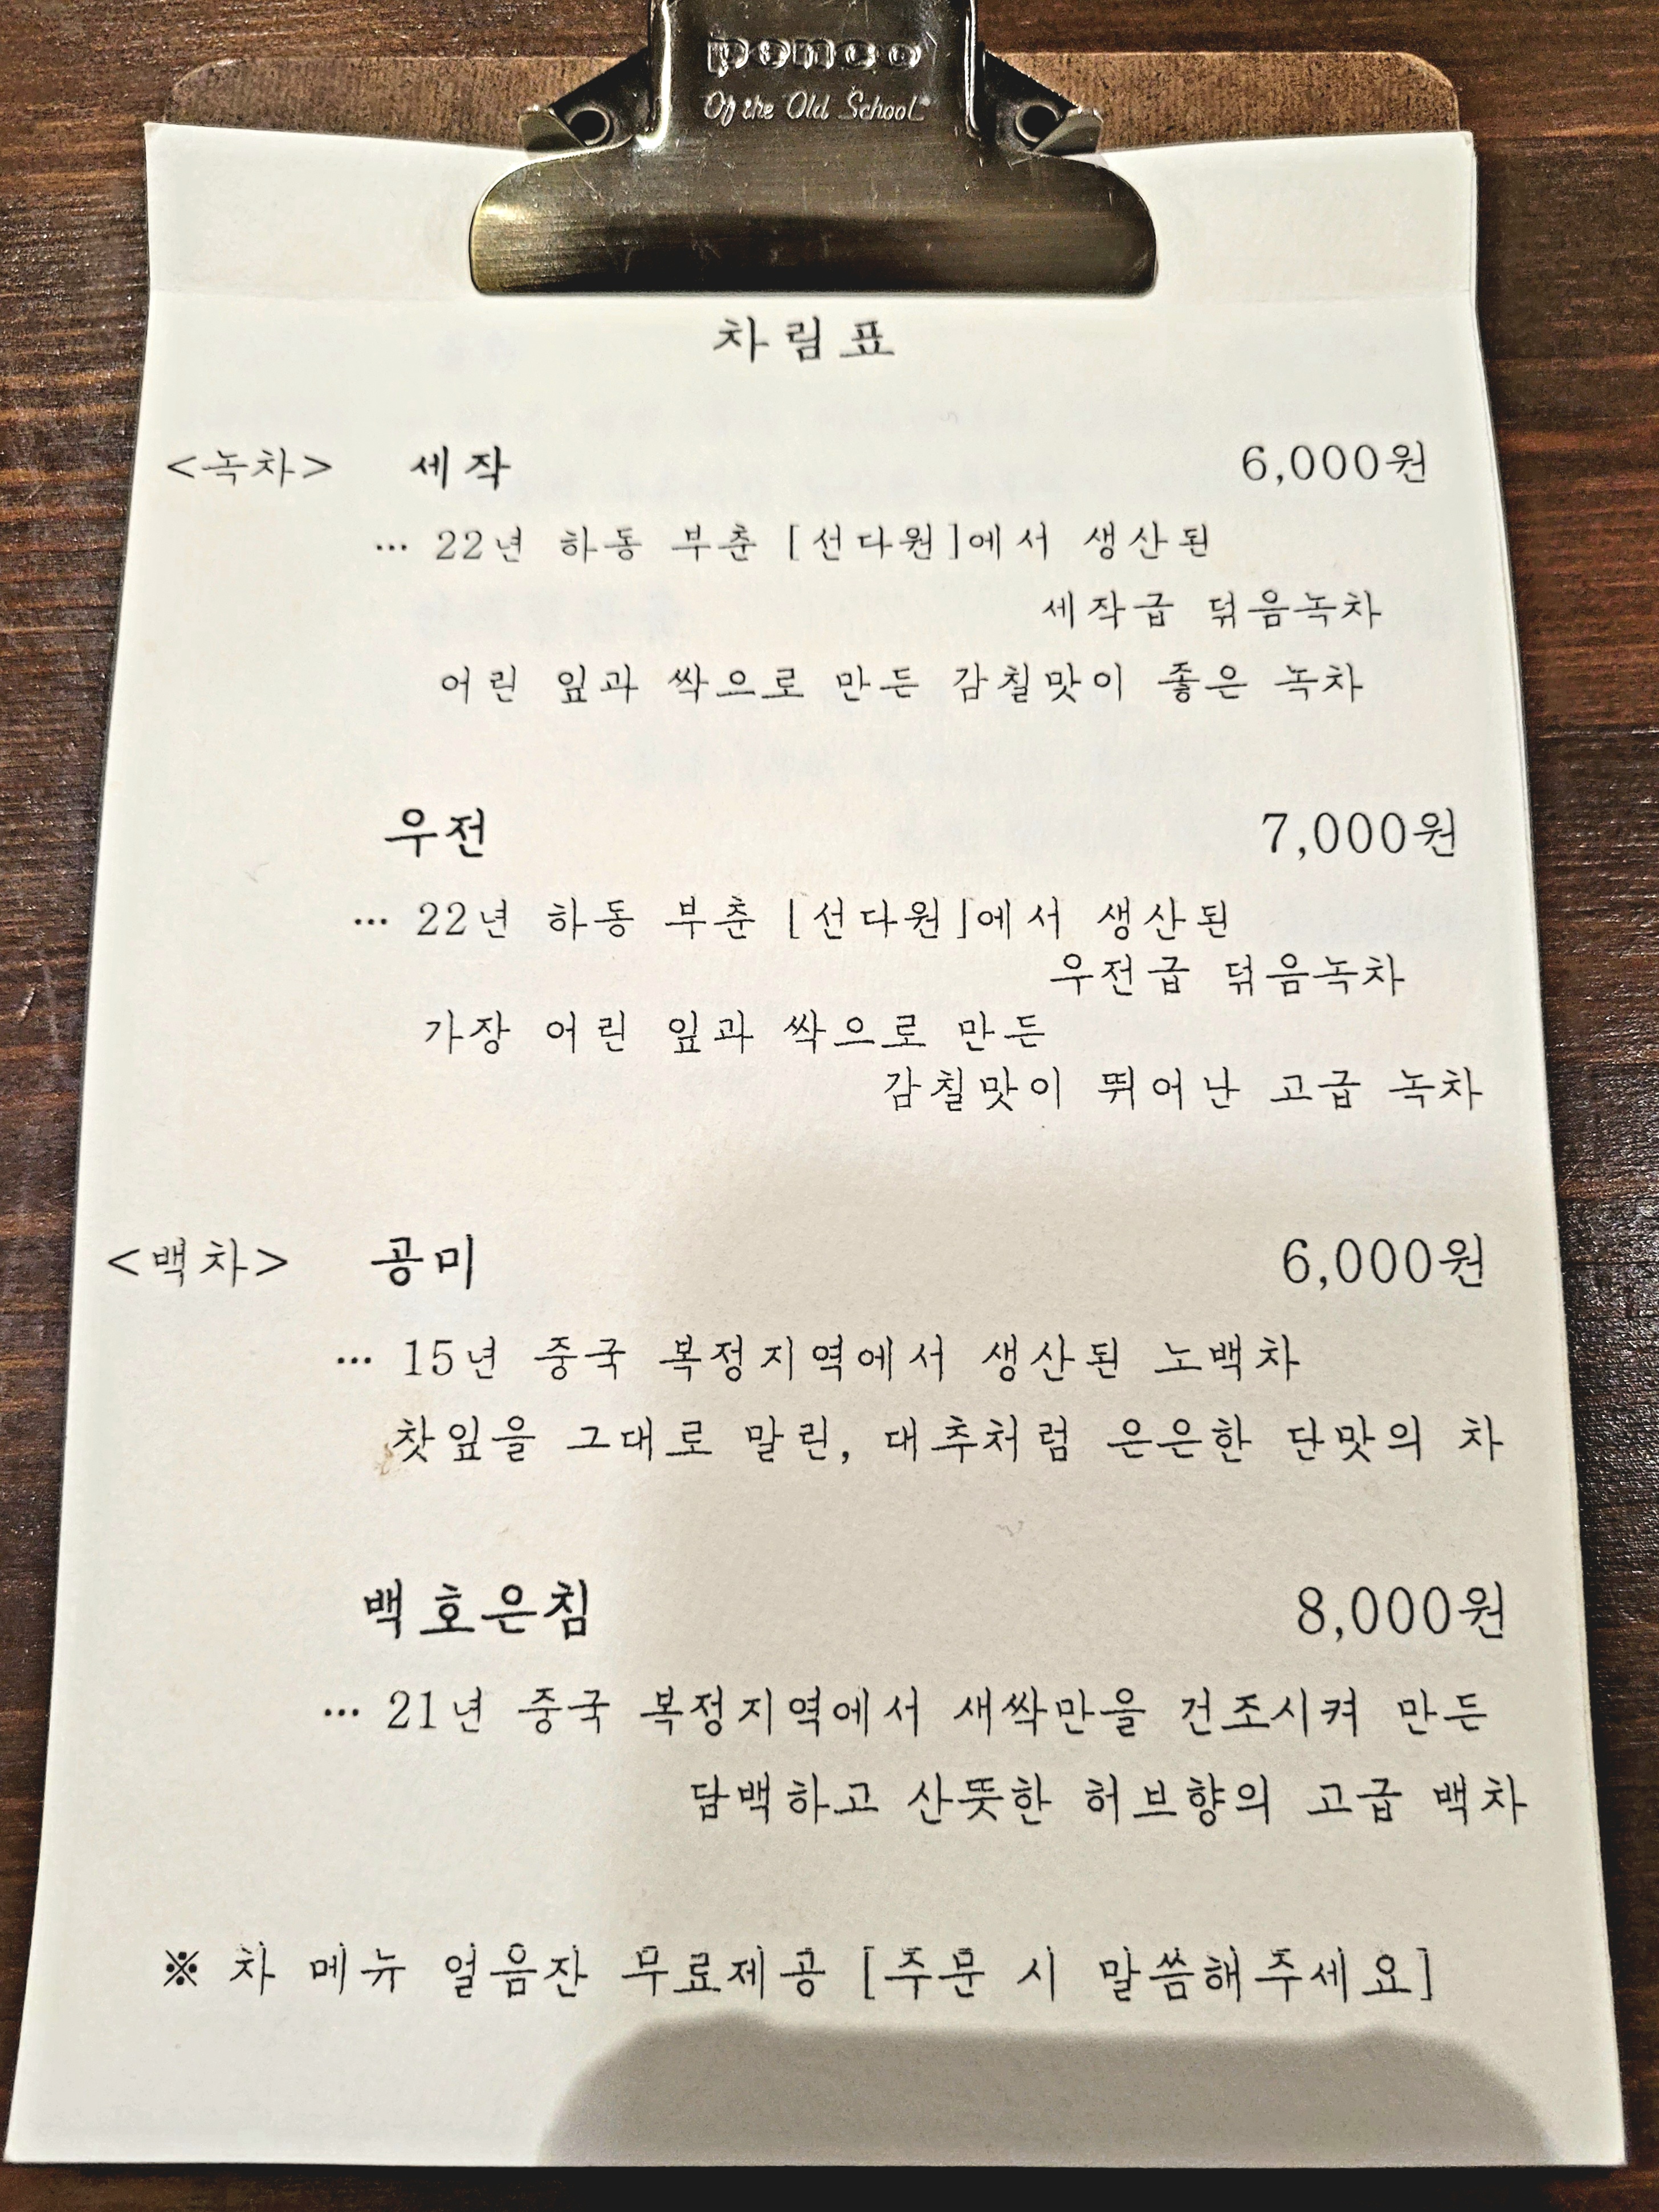 penco
Of the Old School
차림표
<녹차> 세작 6,000원
… 22년 하동 부춘 [선다원]에서 생산된
세작급 덖음녹차
어린 잎과 싹으로 만든 감칠맛이 좋은 녹차
우전 7,000원
… 22년 하동 부춘 [선다원]에서 생산된
우전급 덖음녹차
가장 어린 잎과 싹으로 만든
감칠맛이 뛰어난 고급 녹차
<백차> 공미 6,000원
… 15년 중국 복정지역에서 생산된 노백차
찻잎을 그대로 말린, 대추처럼 은은한 단맛의 차
백호은침 8,000원
… 21년 중국 복정지역에서 새싹만을 건조시켜 만든
담백하고 산뜻한 허브향의 고급 백차
※ 차 메뉴 얼음잔 무료제공 [주문 시 말씀해주세요]